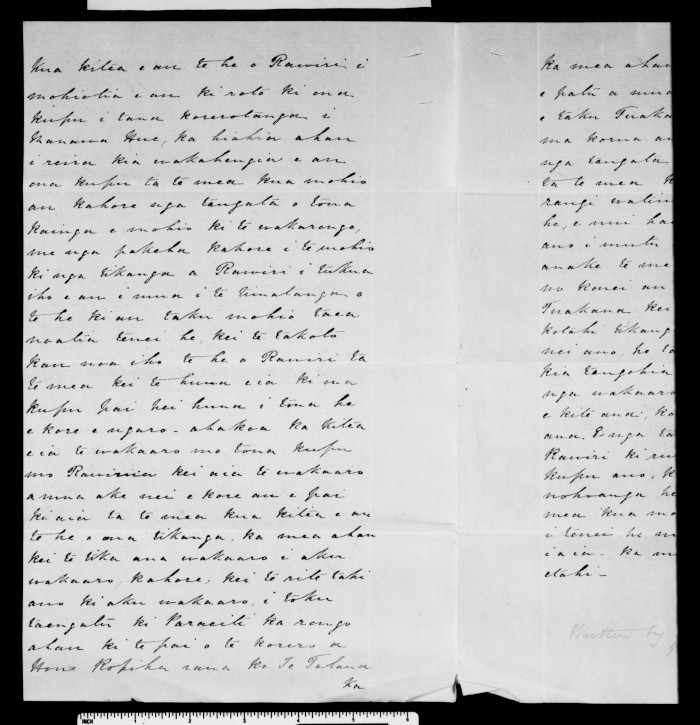 Kua kitea e au te he o Rawiri i
mohiotia e au ki roto ki ona
kupu i tana korerotanga i
Manawa Hue, ka hiahia ahau
i reira kia wakahengia e au
ona kupu ta te mea kua mohio
au kahore nga tangata o tona
kainga e mohio ki te wakarongo,
me nga pakeha kahore i te mohio
ki nga tikanga a Rawiri i tukua
iho e au i mua i te timatanga o
te he ki au taku mohio taea
noatia tenei he, kei te takoto
kau noa iho te he o Rawiri ta
te mea kei te huna e ia ki ona
kupu pai hei huna i tona he
e kore e ngaro - ahakoa ka kitea
e ia te wakaaro mo tona kupu
mo Rawiri kei aia te wakaaro
a mua ake nei e kore au e pai
ki aia ta te mea kua kitea e au
te he o ona tikanga, ka mea ahau
kei te tika ana wakaaro i aku
wakaaro, kahore, kei te rite tahi
ano ki aku wakaaro, i toku
taengatu ki Paraeiti ka rongo
ahau ki te pai o te korero a
Hone Ropiha raua ko Te Talana
Ka
ka mea ahau
e patu a mua
e taku Tuaka
ma korua a
nga tangata
ta te mea k
rangi
he, e nui ha
ano i mutu
anake te me
no konei au
Tuakana kei
kotahi tikang
nei ano, he ta
kia tangohia
nga wakaaro
e kite ana, ko
ana. E nga ta
Rawiri ki ru
kupu ano, k
nohoanga he
mea kua mo
i tenei he m
i aia - ka m
etahi -
Written by